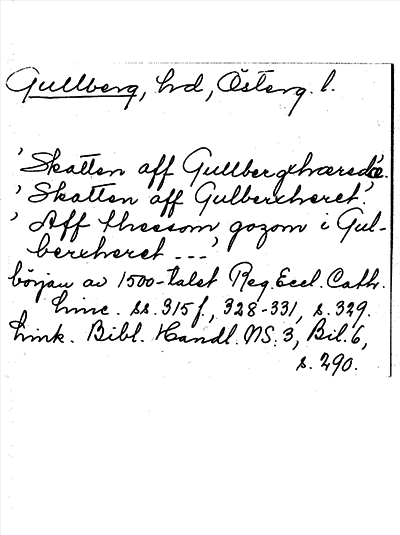 Gullberg, hd, Österg. l.
'Skatten aff Gullbergxhærædæ.'
'Skatten aff Gulberxheret'.
'Aff thessom gozom i Gul-
berxheret ---'
början av 1500-talet Reg. Eccl. Cath.
Linc. ss. 315 f, 328-331, s. 329.
Link. Bibl. Handl. NS. 3, Bil. 6,
s. 290.